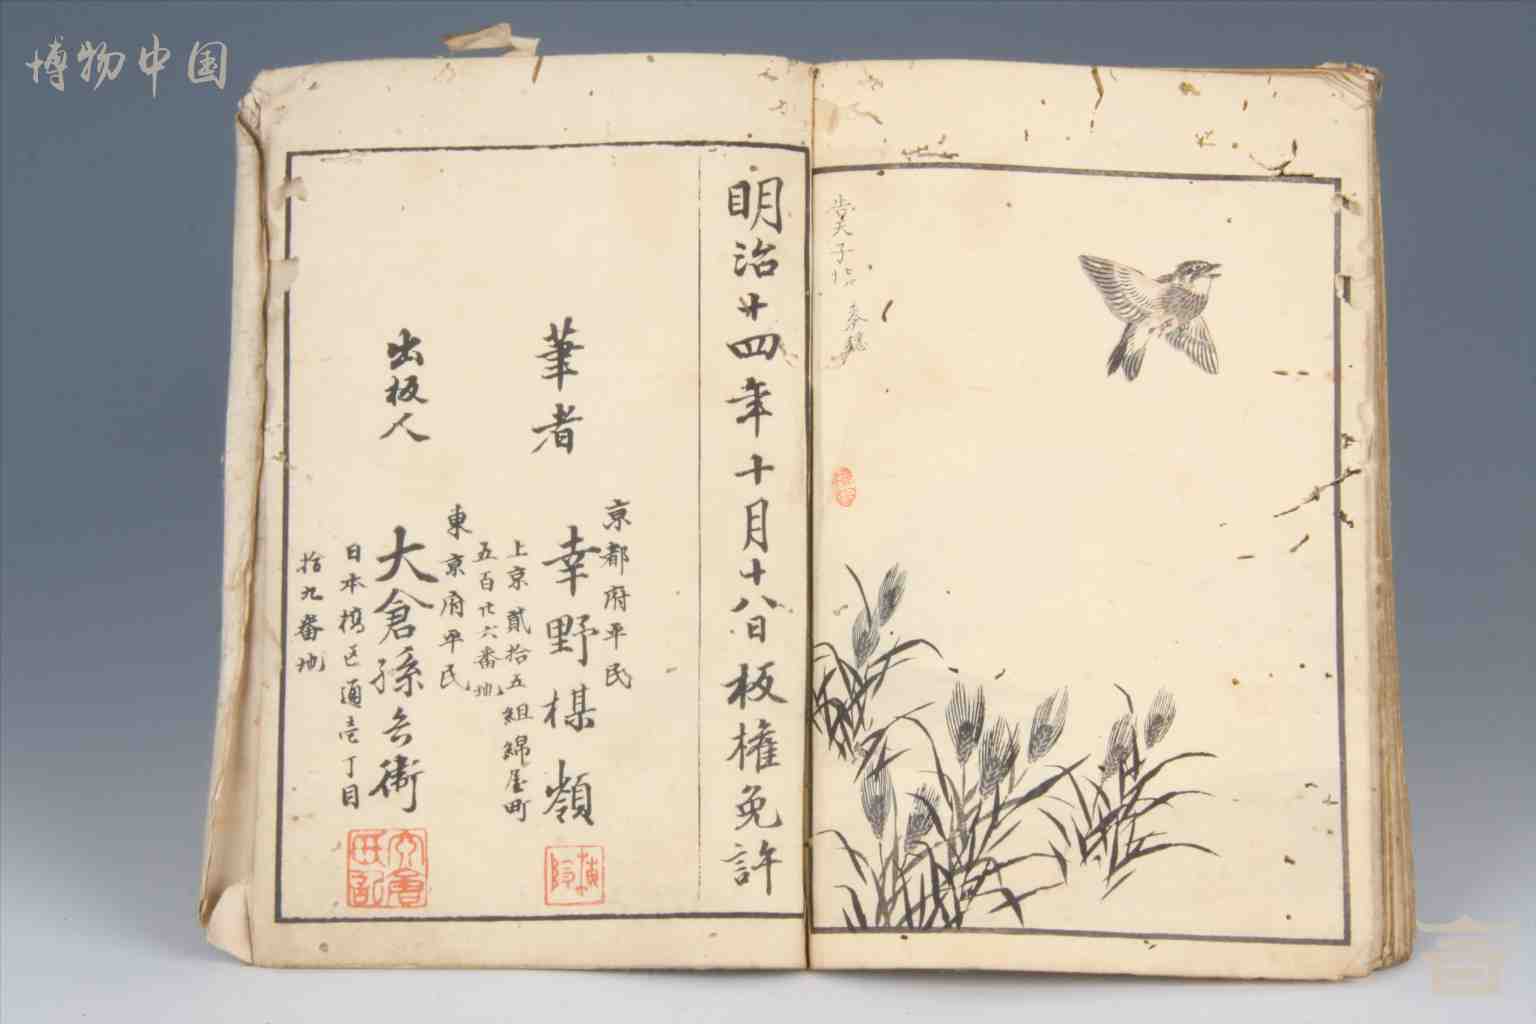 博物中国
告天子
麥穗
明治廿四年十月十八日板權免許
京都府平民
筆者 幸野楳嶺
上京貳拾五組綿屋町
五百廿六番地
東京府平民
出板人 大倉孫兵衛
日本橋區通壱丁目
拾九番地